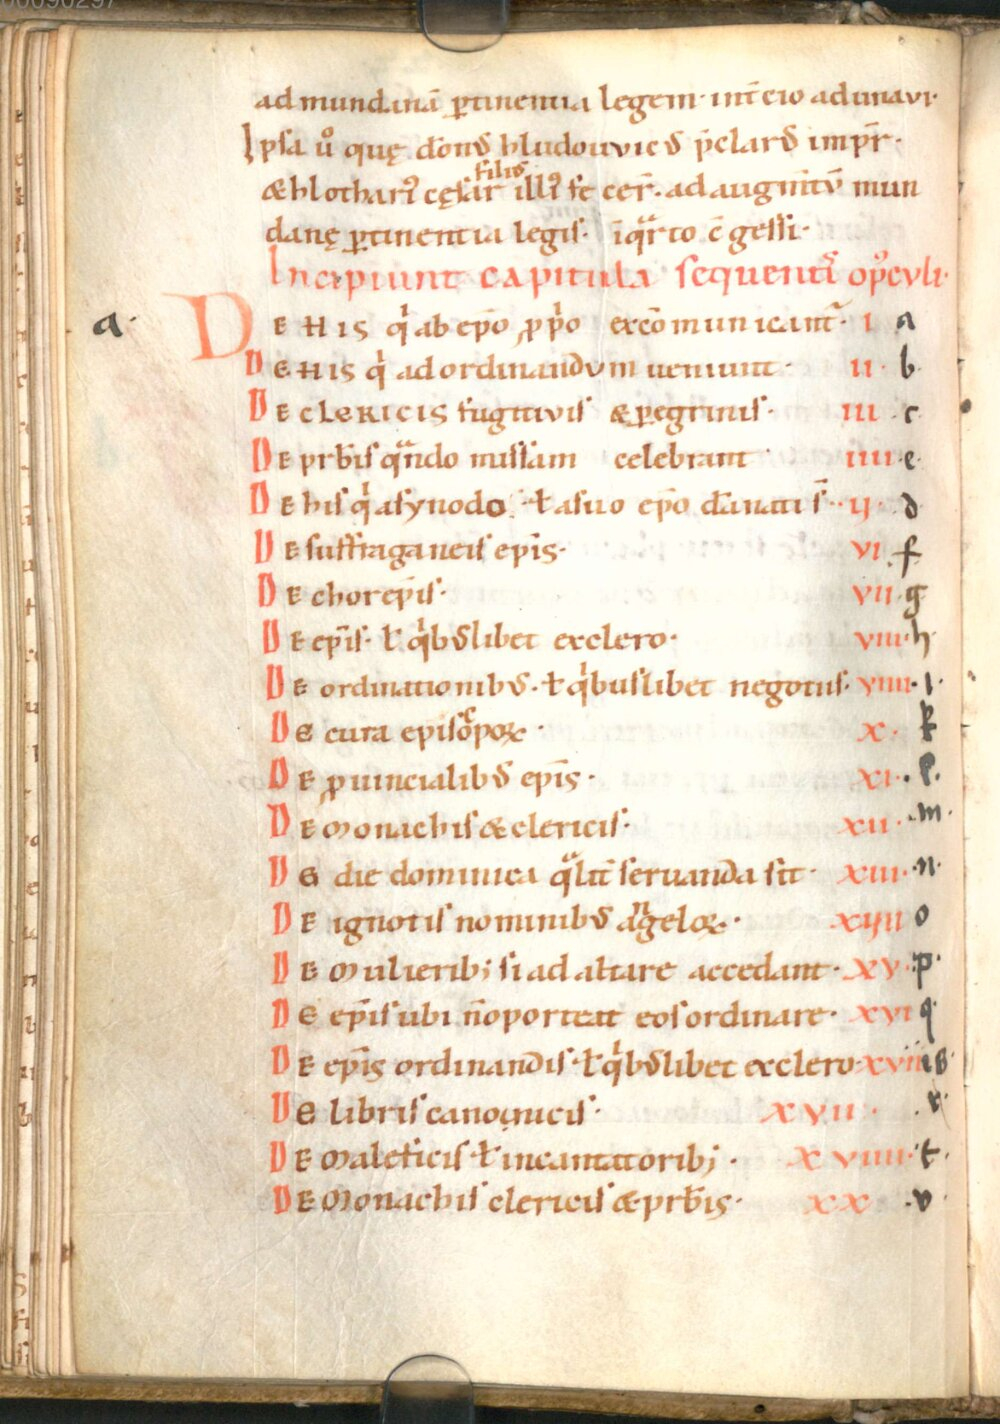 00090297
ad mundanā ꝑtinentia legem· int̄cio adunavi·
Ipsa ů quę don̄ꝰ hludouuicꝰ p̄clarꝰ imp̄r·
filiꝰ
& hlotharꝰ cęsar illiꝰ fecer̄· ad augm̄tū mun
danę ꝑtinentia legis· ī quarto c̄gessi·
Incipiunt capitula sequentis opꝰculi·
a· DE HIS qͥ ab ep̄o ꝓpͥo excōmunicant᷑· I a
DE HIS qͥ ad ordinandvm ueniunt· II· b·
DE cleRICIS fugitiuis & ꝑegrinis· III· c·
DE prb̄is qͣndo missam celebrant· IIII· e·
DE his qͥ a synodo· ł a suo ep̄o dānati s̄· ·II· d
DE suffraganeis ep̄is· VI· f
DE chorep̄is· VII· g
DE ep̄is· ł qͥbꝰlibet ex clero· VIII· h·
DE ordinationibꝰ· ł qͥbuslibet negotiis· VIIII· I·
DE cura episcopoꝝ· X· k
DE ꝓuincialibꝰ ep̄is· XI· l·
DE Monachis & clericis· XII· m·
DE die dominica qͣlit̄ seruanda sit· XIII· n·
DE ignotis nominibꝰ angeloꝝ· XIIII o
DE Mulierib; si ad altare accedant· XV· p·
DE ep̄is ubi n̄ oporteat eos ordinare· XVI q·
DE ep̄is ordinandis· ł qͥbꝰlibet ex clero· XVII
DE libris canonicis· XVII· r·
DE Maleficis ł incantatorib;· XVIIII· t·
DE Monachis clericis & prb̄is· XX· v·